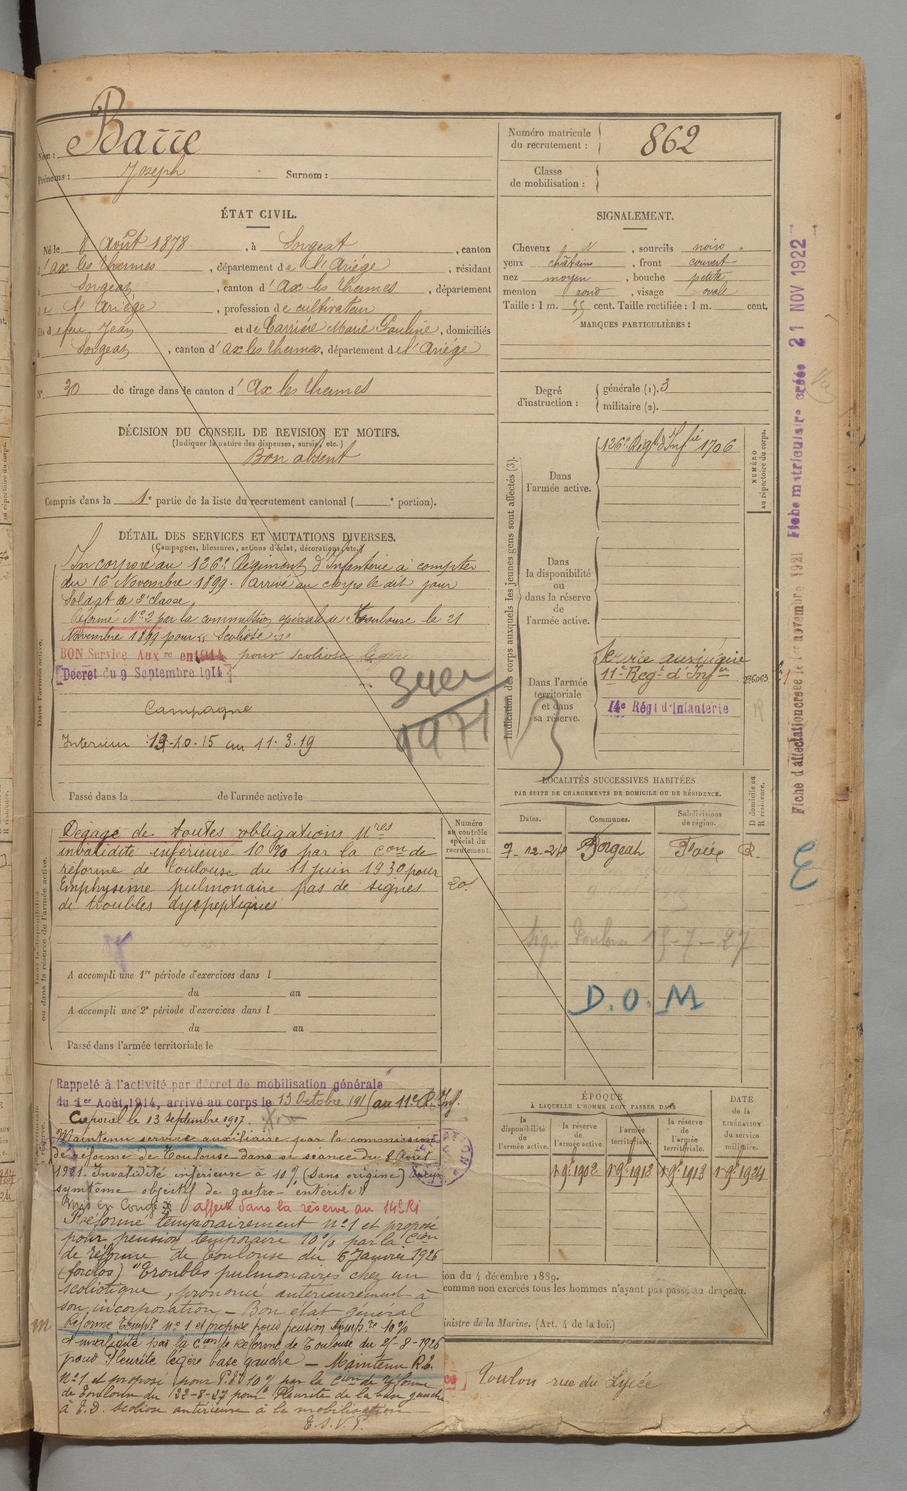 Nom : Barre
Prénoms : Joseph Surnom :
Numéro matricule du recrutement : 862
Classe de mobilisation :
ÉTAT CIVIL.
Né le 8 Août 1878, à Sorgeat, canton
d'Ax les thermes, département de l'Ariège, résidant
à Sorgeat, canton d'Ax les thermes, département
de l'Ariège, profession de cultivateur
fils de feu Jean et de Carrière Marie Pauline, domiciliés
à Sorgeat, canton d'Ax les thermes, département de l'Ariège
N° 30 de tirage dans le canton d'Ax les thermes
SIGNALEMENT.
Cheveux N, sourcils noirs
yeux châtains, front couvert
nez moyen, bouche petite
menton rond, visage ovale
Taille : 1 m. 55 cent. Taille rectifiée : 1 m. cent.
MARQUES PARTICULIÈRES :
Degré d'instruction : générale (1). 3
militaire (2).
DÉCISION DU CONSEIL DE REVISION ET MOTIFS.
(Indiquer la nature des dispenses, sursis, etc.)
Bon absent
Compris dans la 1e partie de la liste du recrutement cantonal ( e portion).
DÉTAIL DES SERVICES ET MUTATIONS DIVERSES.
(Campagnes, blessures, actions d'éclat, décorations, etc.)
Incorporé au 126e Régiment d'Infanterie à compter
du 16 Novembre 1899. Arrivé au corps le dit jour
Soldat de 2e classe.
Réformé N°2 par la commission spéciale de Toulouse le 21
Novembre 1899 pour Scoliose
BON Service Auxre en 1914 pour scoliose légère
Décret du 9 Septembre 1914
Campagne
Intérieur 13-10-15 au 11.3.19
1971
Passé dans la de l'armée active le
Indication des corps auxquels les jeunes gens sont affectés (3).
Dans l'armée active.
126e Régt d'Infie 1706
NUMÉRO au répertoire du corps.
Dans la disponibilité ou dans la réserve de l'armée active.
Dans l'armée territoriale et dans sa réserve.
Service auxiliaire
11e Régt d'Infie
14e Régt d'Infanterie
Dégagé de toutes obligations Mres
invalidité inférieure 10% par la Con de
réforme de Toulouse du 11 juin 1930 pour
Emphysème pulmonaire pas de signes
de troubles dyspeptiques
Numéro au contrôle spécial du recrutement.
LOCALITÉS SUCCESSIVES HABITÉES
PAR SUITE DE CHANGEMENTS DE DOMICILE OU DE RÉSIDENCE.
Dates. Communes. Subdivisions de région. D domicile ou R résidence.
Sorgeat Foix R.
Toulouse 15-7-27
D.O.M
A accompli une 1re période d'exercices dans l
du au
A accompli une 2e période d'exercices dans l
du au
Passé dans l'armée territoriale le
Rappelé à l'activité par décret de mobilisation générale
du 1er Août 1914, arrivé au corps le 13 Octobre 1915 au 11e R. Inf.
Caporal le 13 septembre 1917
Maintenu service auxiliaire par la commission
de réforme de Toulouse dans sa séance du 2 Avril
1921. Invalidité inférieure à 10% (Sans origine)
symtome objectif de gastro-entérite
affecté dans la réserve au 14e RI
Réformé temporairement n°1 et proposé
pour pension temporaire 10% par la Con
de réforme de Toulouse du 6 Janvier 1926
"Troubles pulmonaires chez un
scoliotique, prononcé antérieurement à
son incorporation - Bon état général
Réformé temp n°1 et proposé pour pension tempre 10%
d'invalidité par la Con de Réforme de Toulouse du -8-1926
pour Pleurite légère base gauche - Maintenu
n°1 et proposé pour 10% par la Con de réforme
de Toulouse du 22-8-27 pour Pleurite de la base gauche
scoliose antérieure à la mobilisation
ÉPOQUE
À LAQUELLE L'HOMME DOIT PASSER DANS
la disponibilité de l'armée active.
la réserve de l'armée active.
l'armée territoriale.
la réserve de l'armée territoriale.
DATE de la LIBÉRATION du service militaire.
ion du 4 décembre 1889.
comme non exercés tous les hommes n'ayant pas passé au drapeau.
inistre de la Marine. (Art. 4 de la loi.)
Toulon rue du Lycée
Fiche d'affectation créée le 1er novembre 1921 Fiche matriculaire créée 21 NOV 1922